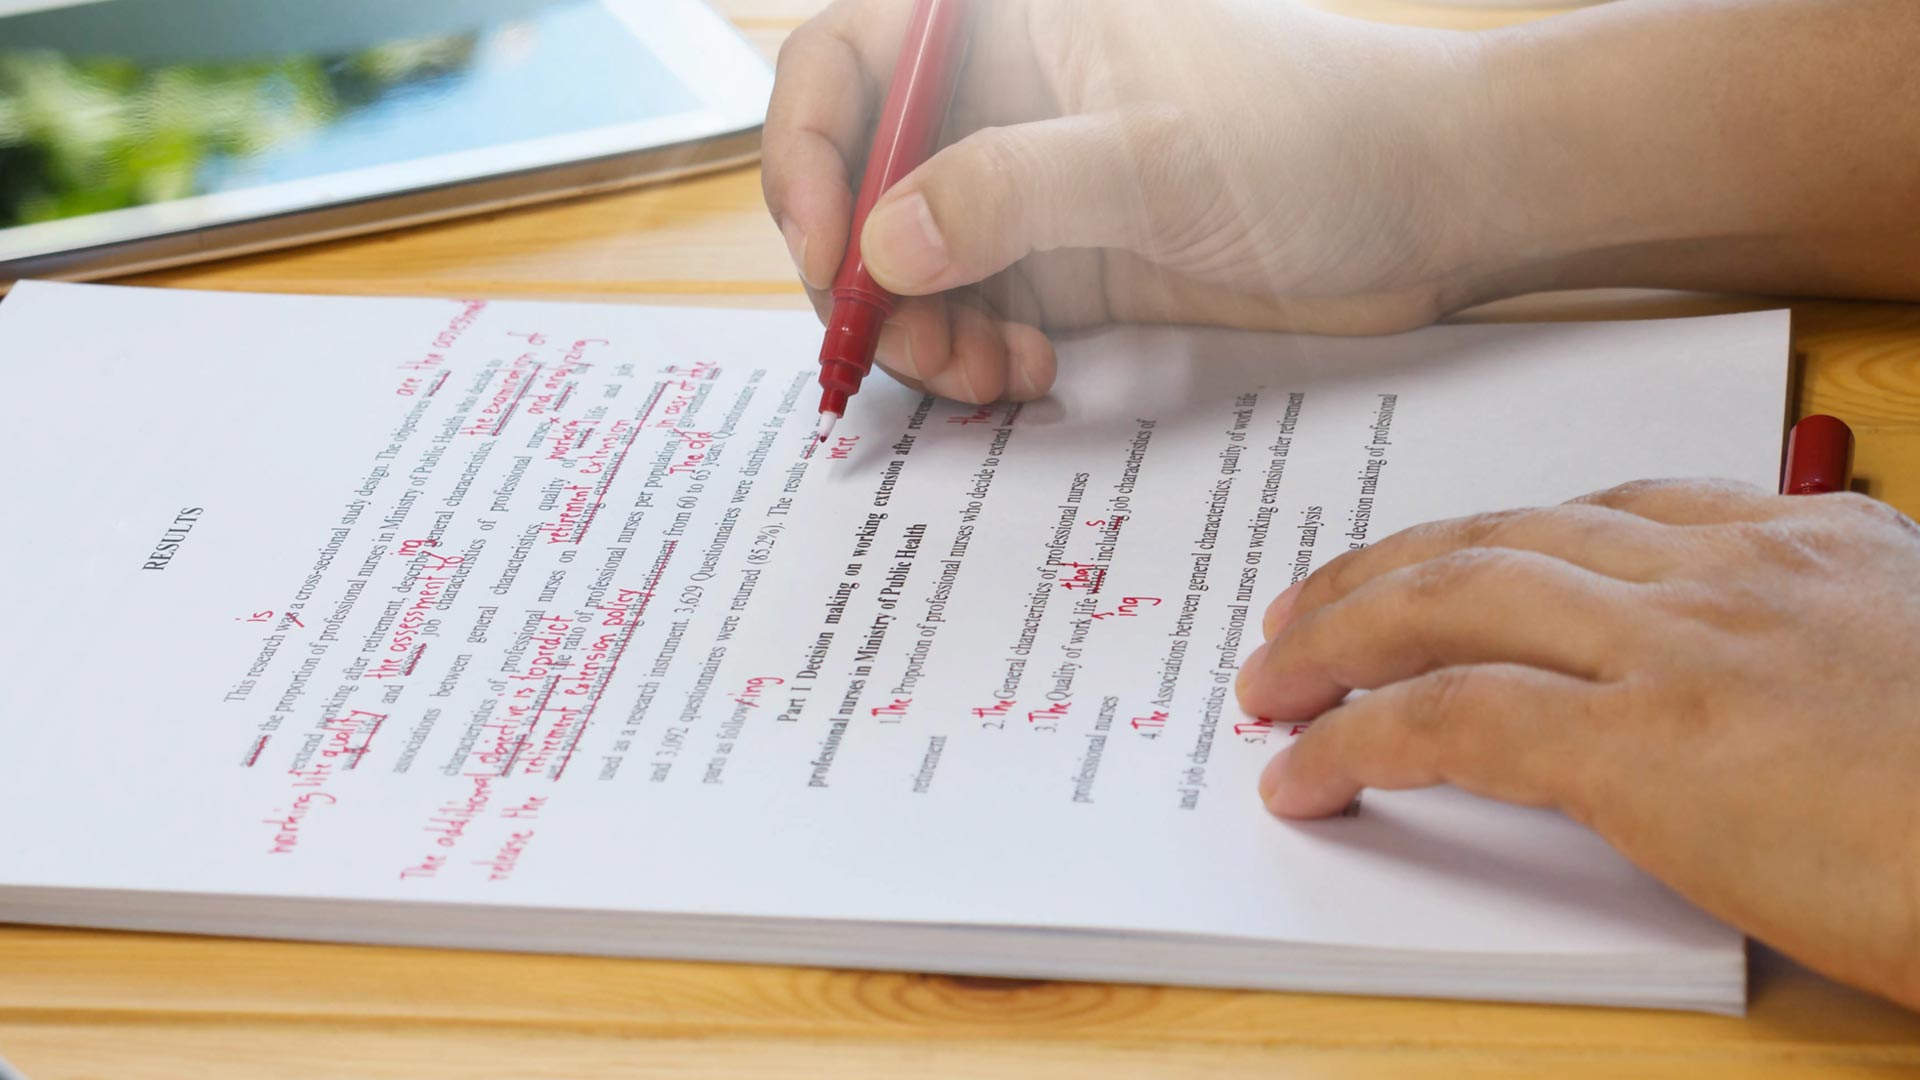 RESULTS
is
This research was a cross-sectional study design. The objectives
are the
the proportion of professional nurses in Ministry of Public Health who decide to
extend working after retirement, describe general characteristics,
ing
the examination of
working life quality
and job characteristics of professional nurses
the assessment to
and analyzing
associations between general characteristics, quality of life and job
working
characteristics of professional nurses on
retirement extension
The additional objective is to predict
ratio of professional nurses per population government
in case of the
release the retirement extension policy
from 60 to 65 years. Questionnaire was
The old
used as a research instrument. 3,629 Questionnaires were distributed for questioning
and 3,092 questionnaires were returned (85.2%). The results can be
were
parts as following
ing
Part 1 Decision making on working extension after
professional nurses in Ministry of Public Health
1. The Proportion of professional nurses who decide to extend
the
retirement
2. The General characteristics of professional nurses
3. The Quality of work life which including job characteristics of
that s
ing
professional nurses
4. The Associations between general characteristics, quality of work life
and job characteristics of professional nurses on working extension after retirement
5.
analysis
decision making of professional